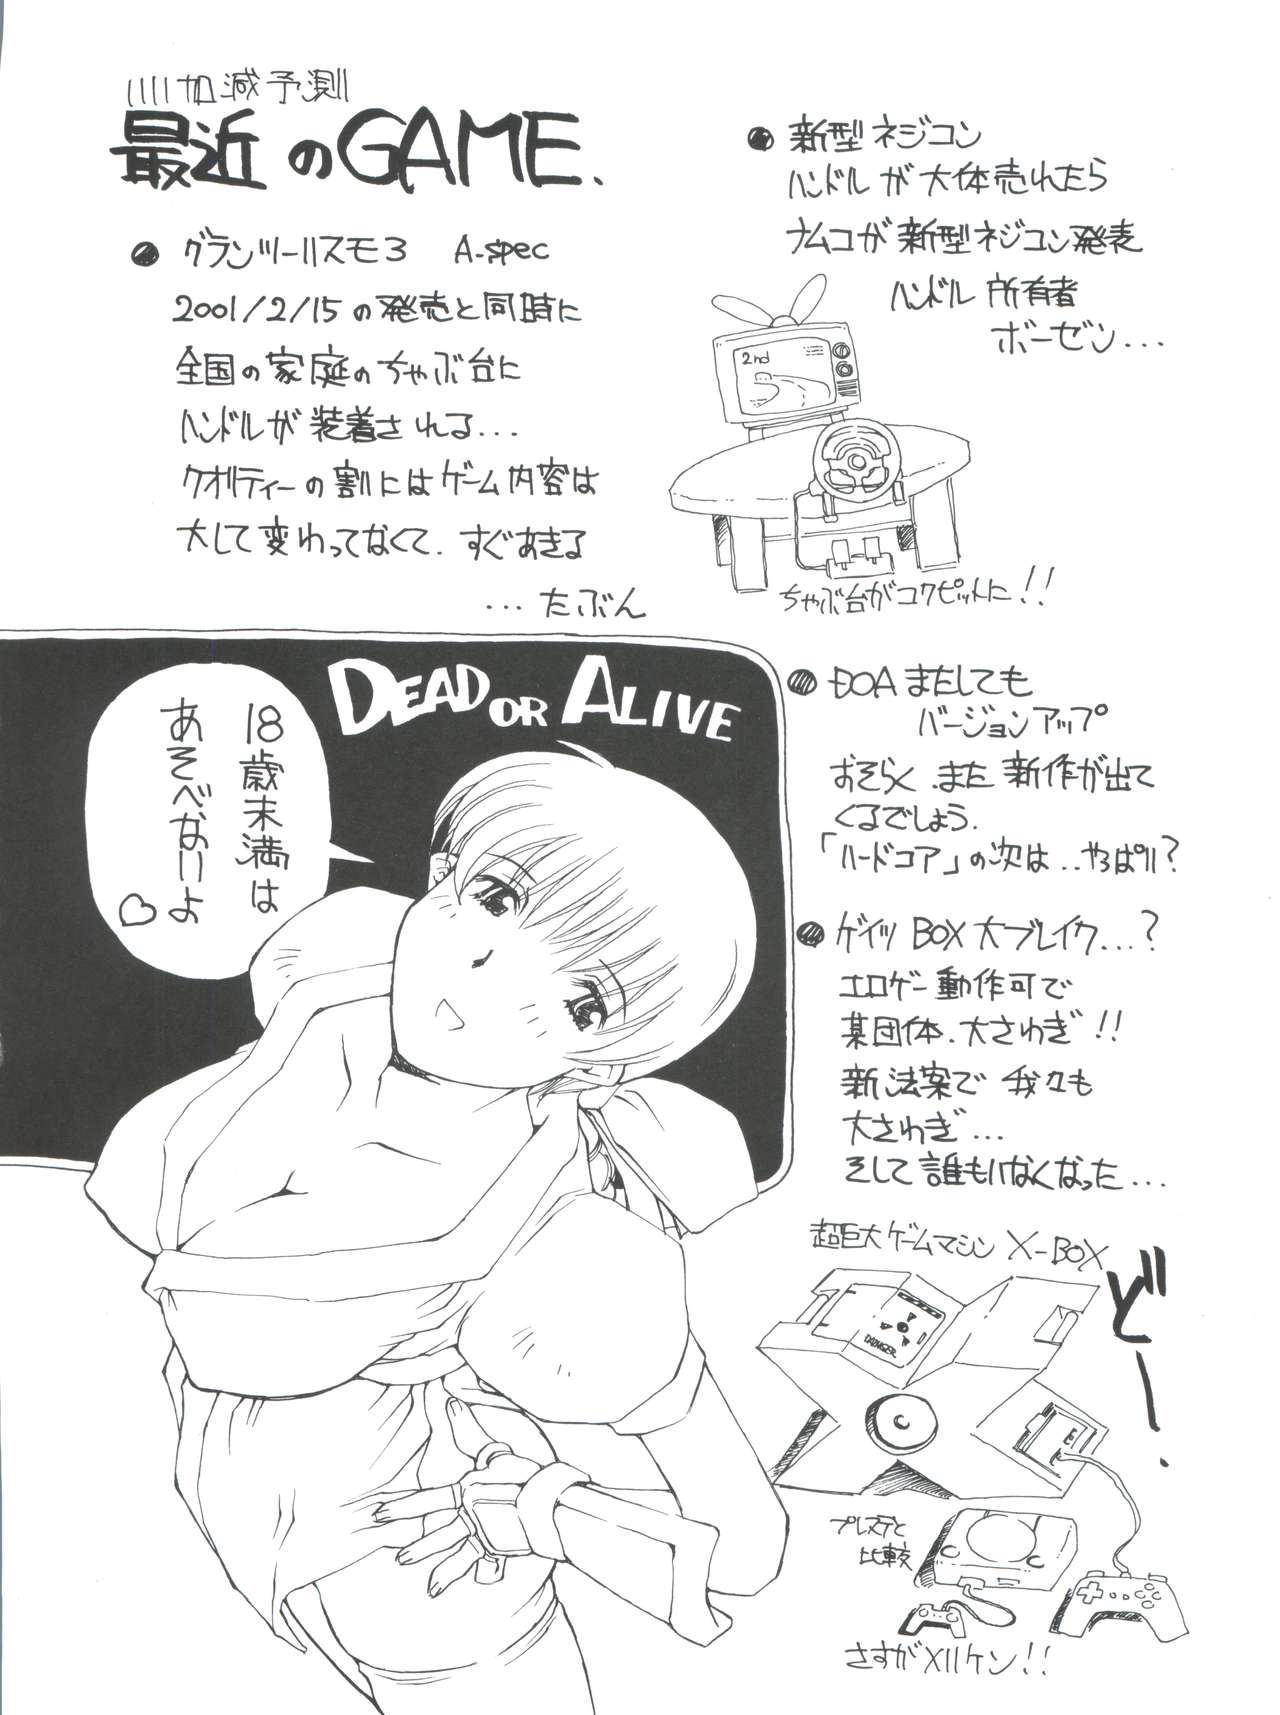 いいかげん予測
最近のGAME.
● グランツーリスモ3 A-spec
2001/2/15の発売と同時に
全国の家庭のちゃぶ台に
ハンドルが装着される...
クオリティーの割にはゲーム内容は
大して変わってなくて、すぐあきる
...たぶん
● 新型ネジコン
ハンドルが大体売れたら
ナムコが新型ネジコン発表
ハンドル所有者
ボーゼン...
2nd
ちゃぶ台がコクピットに!!
DEAD OR ALIVE
18歳未満は
あそべないよ♡
● DOAまたしても
バージョンアップ
おそらく、また新作が出て
くるでしょう.
「ハードコア」の次は..やっぱり?
● ゲイツBOX大ブレイク...?
エロゲー動作可で
某団体、大さわぎ!!
新法案で我々も
大さわぎ...
そして誰もいなくなった...
超巨大ゲームマシン X-BOX
どー.
DAINGER
E
プレステと
比較
さすがメリケン!!